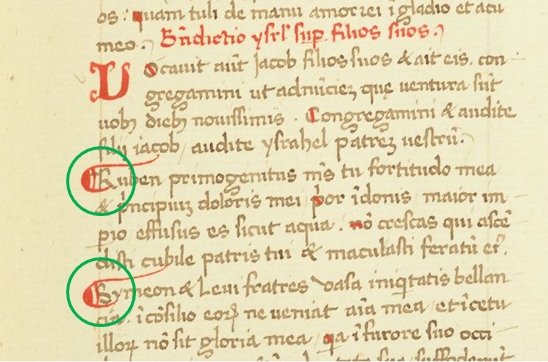 os. quam tuli de manu amorrei ĩ gladio et arcu
meo. Bñdictio ysrl' sup filios suos.
Vocauit aũt Jacob filios suos & ait eis. con
gregamini ut adnũciez que ventura sũt
uobȝ diebȝ nouissimis. Congregamini & audite
filij iacob, audite ysrahel patrez vestrũ.
Ruben primogenitus m̃s tu fortitudo mea
& p̃ncipiuz doloris mei p̃or ĩ donis maior im
pio effusus es sicut aqua. nõ crescas qui ascẽ
disti cubile patris tui & maculasti stratũ ei'.
Symeon & Leui fratres vasa iniqtatis bellan
cia. ĩ cõsilio eoꝝ ne veniat aĩa mea et ĩ cetu
illoꝝ nõ sit gloria mea, qa ĩ furore suo occi